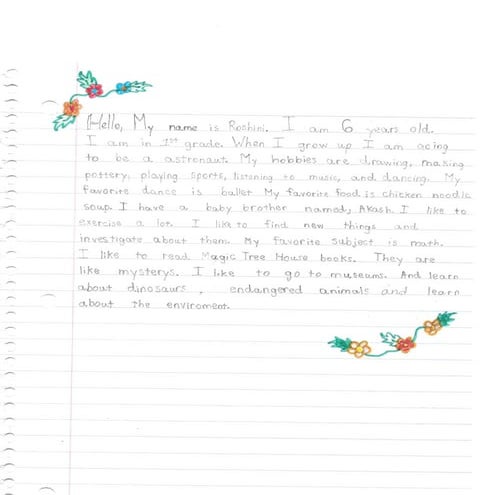 Hello, My name is Roshini. I am 6 years old.
I am in 1st grade. When I grow up I am going
to be a astronaut. My hobbies are drawing, making
pottery, playing sports, listening to music, and dancing. My
favorite dance is ballet My favorite food is chicken noodle
soup. I have a baby brother named, Akash. I like to
exercise a lot. I like to find new things and
investigate about them. My favorite subject is math.
I like to read Magic Tree House books. They are
like mysterys. I like to go to museums. And learn
about dinosaurs, endangered animals and learn
about the enviroment.